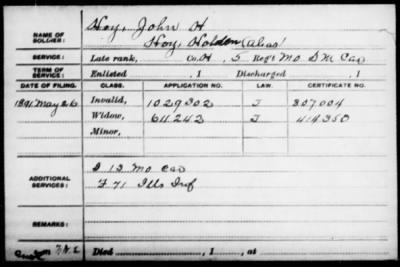 NAME OF SOLDIER: Hoy, John H
Hoy, Holden (alias)
SERVICE: Late rank, Co. H, 5 Reg't Mo S M Cav
TERM OF SERVICE: Enlisted , 1 Discharged , 1
DATE OF FILING. CLASS. APPLICATION NO. LAW. CERTIFICATE NO.
1891 May 26 Invalid, 1029302 J 807004
Widow, 611242 J 414350
Minor,
ADDITIONAL SERVICES: I 13 Mo Cav
F 71 Ills Inf
REMARKS:
Died , 1 , at